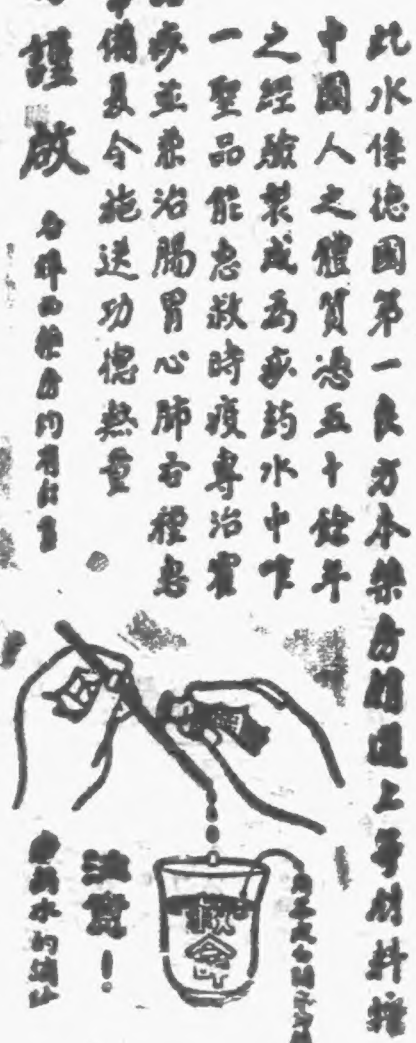 此水係德國第一良方本藥房精選上等材料擇
中國人之體質憑五十餘年
之經驗製成為痧药水中唯
一聖品能急救時疫專治霍
痧並兼治腸胃心肺各種患
備夏令施送功德無量
謹啟
各埠西藥房均有出售
注意！
救命